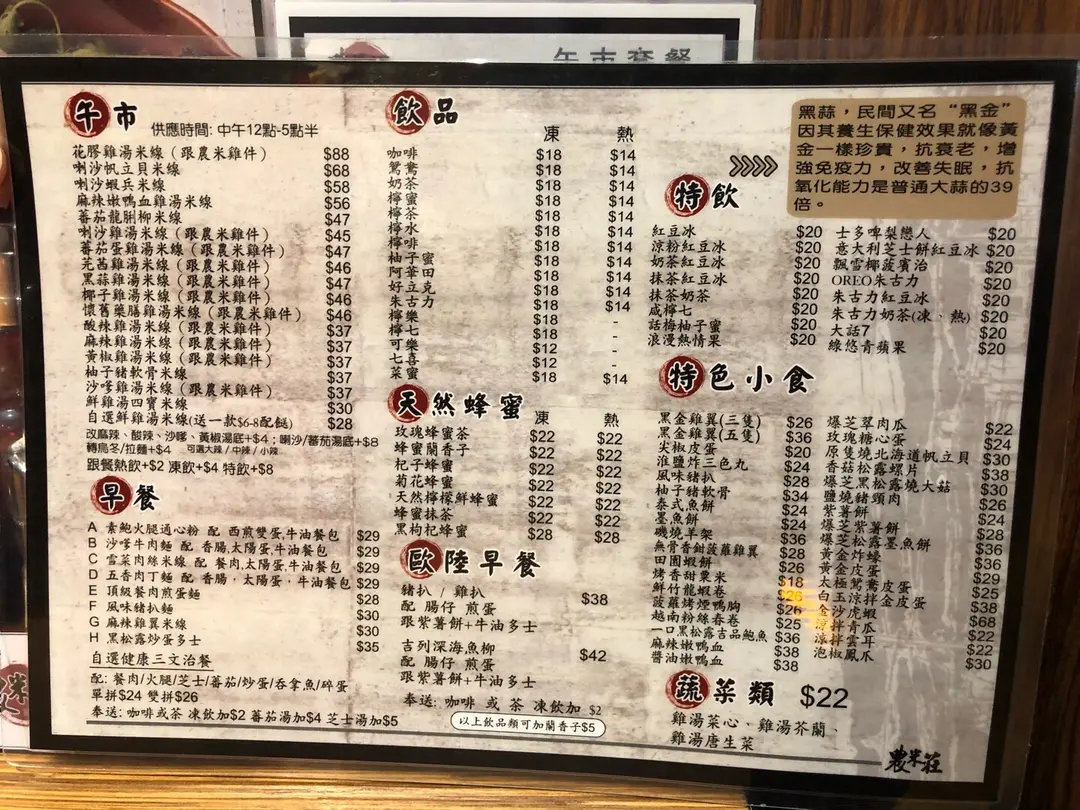 午市套餐
午市
供應時間: 中午12點-5點半
花膠雞湯米線（跟農米雞件） $88
喇沙帆立貝米線 $68
喇沙蝦兵米線 $58
麻辣嫩鴨血雞湯米線 $56
蕃茄龍脷柳米線 $47
喇沙雞湯米線（跟農米雞件） $45
蕃茄蛋雞湯米線（跟農米雞件） $47
芫茜雞湯米線（跟農米雞件） $46
黑蒜雞湯米線（跟農米雞件） $47
椰子雞湯米線（跟農米雞件） $46
懷舊藥膳雞湯米線（跟農米雞件） $46
酸辣雞湯米線（跟農米雞件） $37
麻辣雞湯米線（跟農米雞件） $37
黃椒雞湯米線（跟農米雞件） $37
柚子豬軟骨米線 $37
沙嗲雞湯米線（跟農米雞件） $37
鮮雞湯四寶米線 $30
自選鮮雞湯米線(送一款$6-8配餸) $28
改麻辣、酸辣、沙嗲、黃椒湯底+$4；喇沙/蕃茄湯底+$8
轉烏冬/拉麵+$4 可選大辣 / 中辣 / 小辣
跟餐熱飲+$2 凍飲+$4 特飲+$8
早餐
A 素鮑火腿通心粉 配 西煎雙蛋,牛油餐包 $29
B 沙嗲牛肉麵 配 香腸,太陽蛋,牛油餐包 $29
C 雪菜肉絲米線 配 餐肉,太陽蛋,牛油餐包 $29
D 五香肉丁麵 配 香腸，太陽蛋，牛油餐包 $29
E 頂級餐肉煎蛋麵 $28
F 風味豬扒麵 $30
G 麻辣雞翼米線 $30
H 黑松露炒蛋多士 $35
自選健康三文治餐
配: 餐肉/火腿/芝士/蕃茄/炒蛋/吞拿魚/碎蛋
單拼$24 雙拼$26
奉送: 咖啡或茶 凍飲加$2 蕃茄湯加$4 芝士湯加$5
飲品
凍 熱
咖啡 $18 $14
鴛鴦 $18 $14
奶茶 $18 $14
檸蜜 $18 $14
檸茶 $18 $14
檸水 $18 $14
檸啡 $18 $14
柚子蜜 $18 $14
阿華田 $18 $14
好立克 $18 $14
朱古力 $18 $14
檸樂 $18 -
檸七 $18 -
可樂 $12 -
七喜 $12 -
菜蜜 $18 $14
天然蜂蜜
凍 熱
玫瑰蜂蜜茶 $22 $22
蜂蜜蘭香子 $22 $22
杞子蜂蜜 $22 $22
菊花蜂蜜 $22 $22
天然檸檬鮮蜂蜜 $22 $22
蜂蜜抹茶 $22 $22
黑枸杞蜂蜜 $28 $28
歐陸早餐
豬扒 / 雞扒 $38
配 腸仔 煎蛋
跟紫薯餅+牛油多士
吉列深海魚柳 $42
配 腸仔 煎蛋
跟紫薯餅+牛油多士
奉送: 咖啡 或 茶 凍飲加 $2
以上飲品類可加蘭香子$5
黑蒜，民間又名“黑金”
因其養生保健效果就像黃
金一樣珍貴，抗衰老，增
強免疫力，改善失眠，抗
氧化能力是普通大蒜的39
倍。
特飲
紅豆冰 $20
涼粉紅豆冰 $20
奶茶紅豆冰 $20
抹茶紅豆冰 $20
抹茶奶茶 $20
咸檸七 $20
話梅柚子蜜 $20
浪漫熱情果 $20
士多啤梨戀人 $20
意大利芝士餅紅豆冰 $20
飄雪椰菠賓治 $20
OREO朱古力 $20
朱古力紅豆冰 $20
朱古力奶茶(凍、熱) $20
大話7 $20
綠悠青蘋果 $20
特色小食
黑金雞翼(三隻) $26
黑金雞翼(五隻) $36
尖椒皮蛋 $20
淮鹽炸三色丸 $24
風味豬扒 $28
柚子豬軟骨 $34
泰式魚餅 $24
墨魚餅 $24
磯燒羊架 $36
無骨香鉗菠蘿雞翼 $28
田園蝦餅 $26
烤香甜粟米 $18
鮮竹龍蝦卷 $26
菠蘿烤煙鴨胸 $26
越南粉絲春卷 $25
一口黑松露吉品鮑魚 $36
麻辣嫩鴨血 $38
醬油嫩鴨血 $38
爆芝翠肉瓜 $22
玫瑰糖心蛋 $24
原隻燒北海道帆立貝 $30
香菇松露螺片 $38
爆芝黑松露燒大菇 $30
鹽燒豬頸肉 $26
紫薯餅 $24
爆芝紫薯餅 $28
爆芝松露墨魚餅 $36
黃金炸蠔 $36
黃金皮蛋 $29
太極鴛鴦皮蛋 $25
白玉涼拌金皮蛋 $38
金沙虎蝦 $68
涼拌青瓜 $22
涼拌雲耳 $22
泡椒鳳爪 $30
蔬菜類 $22
雞湯菜心、雞湯芥蘭、
雞湯唐生菜
農米莊